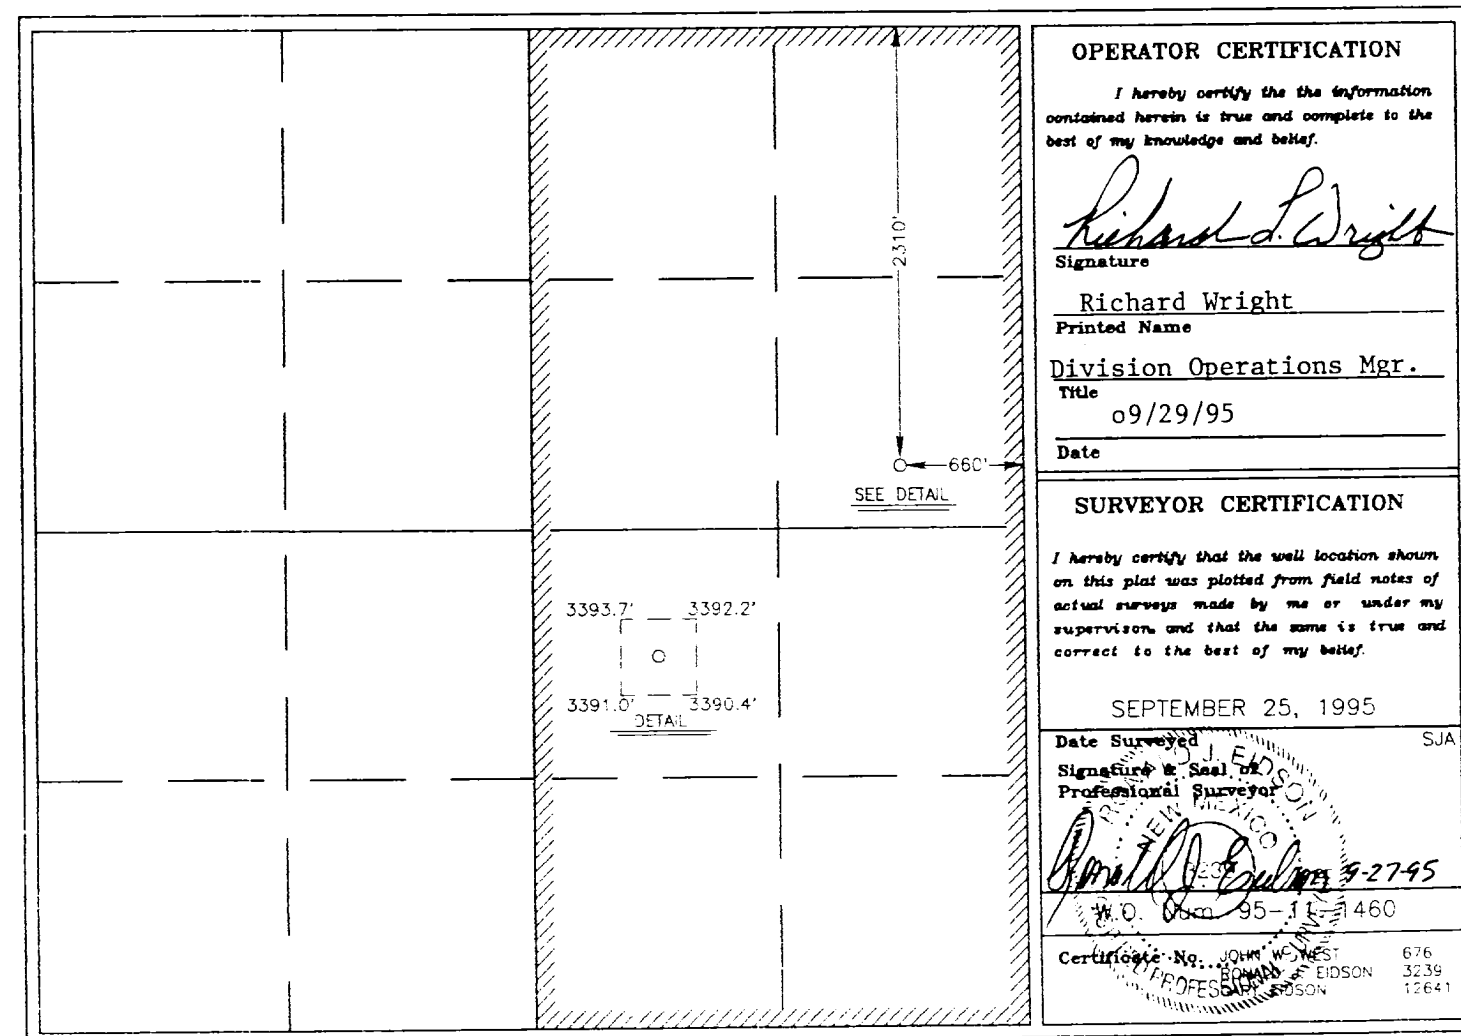 2310'
660'
SEE DETAIL
3393.7' 3392.2'
3391.0' 3390.4'
DETAIL
OPERATOR CERTIFICATION
I hereby certify the the information
contained herein is true and complete to the
best of my knowledge and belief.
Richard L. Wright
Signature
Richard Wright
Printed Name
Division Operations Mgr.
Title
o9/29/95
Date
SURVEYOR CERTIFICATION
I hereby certify that the well location shown
on this plat was plotted from field notes of
actual surveys made by me or under my
supervison, and that the same is true and
correct to the best of my belief.
SEPTEMBER 25, 1995
Date Surveyed SJA
Signature & Seal of
Professional Surveyor
RONALD J. EIDSON
NEW MEXICO
3239
PROFESSIONAL SURVEYOR
Ronald J. Eidson 9-27-95
W.O. Num. 95-11-1460
Certificate No. JOHN W. WEST 676
RONALD J. EIDSON 3239
GARY EIDSON 12641